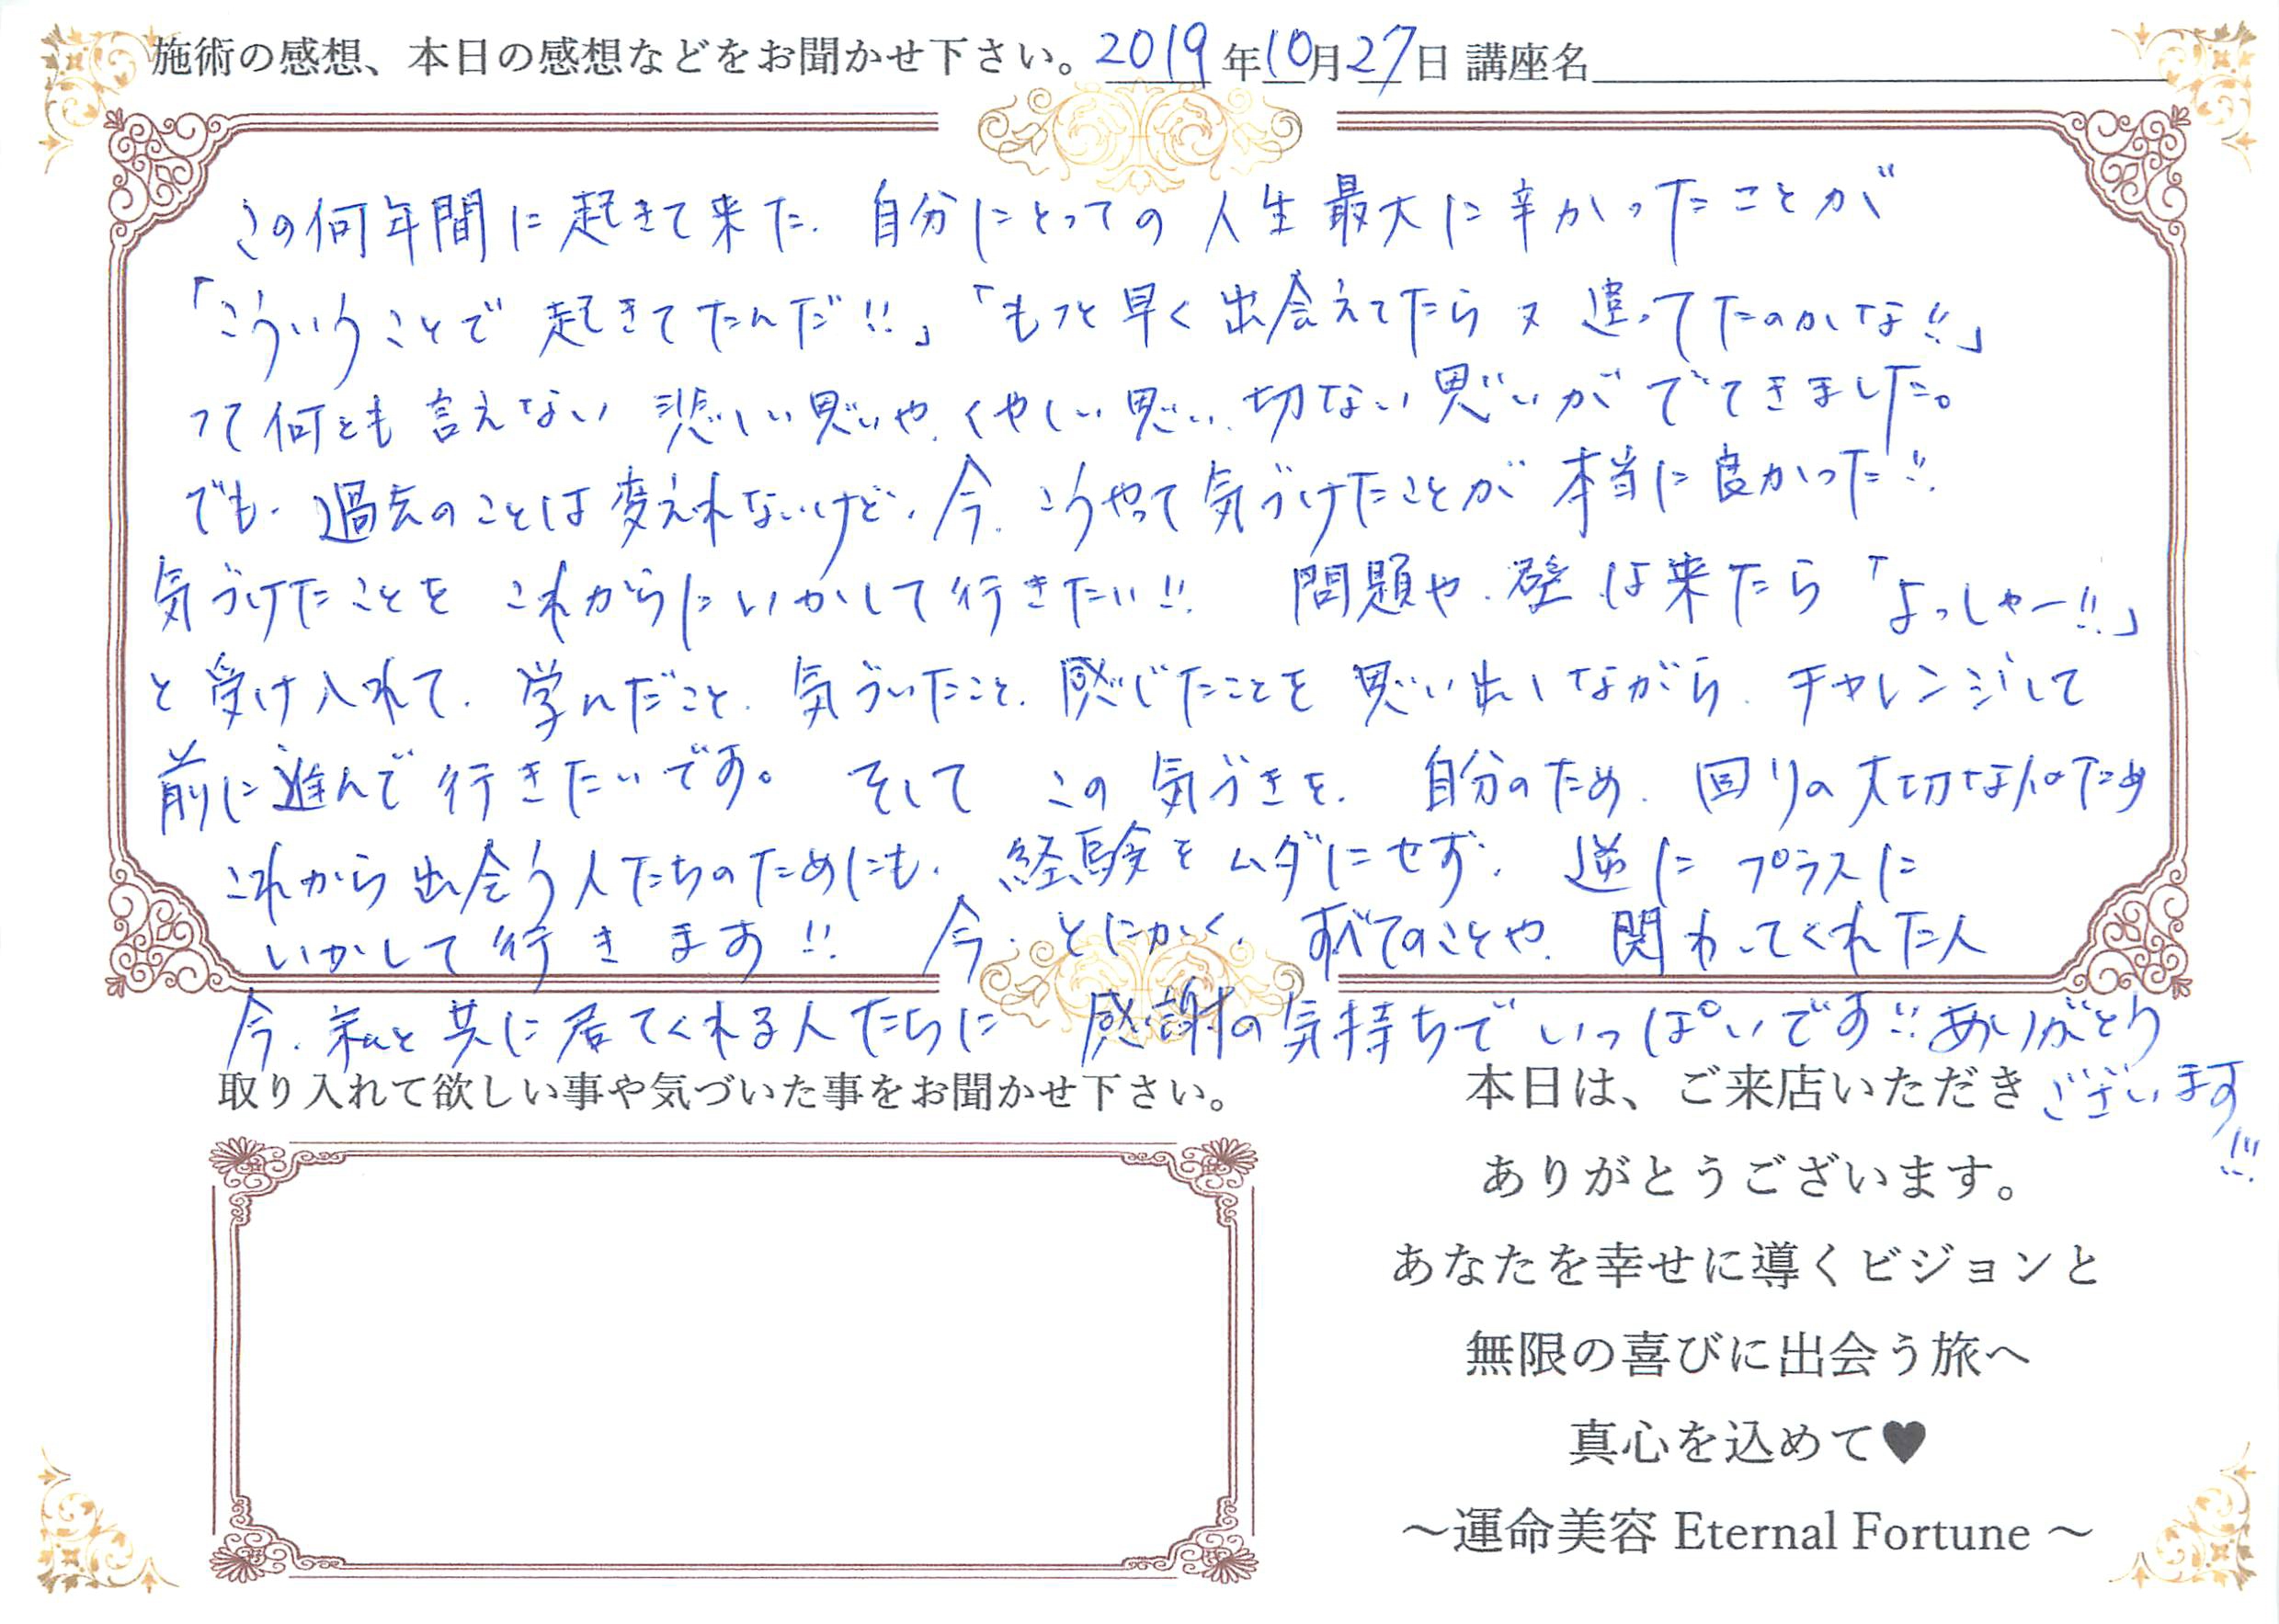 施術の感想、本日の感想などをお聞かせ下さい。2019年10月27日 講座名
この何年間に起きて来た、自分にとっての人生最大に辛かったことが
「こういうことで起きてたんだ!!」「もっと早く出会えてたら又違ってたのかな!!」
って何とも言えない悲しい思いや、くやしい思い、切ない思いがでてきました。
でも、過去のことは変えれないけど、今、こうやって気づけたことが本当に良かった!!
気づけたことをこれからにいかして行きたい!! 問題や、壁は来たら「よっしゃー!!」
と受け入れて、学んだこと、気づいたこと、感じたことを思い出しながら、チャレンジして
前に進んで行きたいです。そしてこの気づきを、自分のため、回りの大切な人のため
これから出会う人たちのためにも、経験をムダにせず、逆にプラスに
いかして行きます!! 今、とにかく、すべてのことや、関わってくれた人
今、私と共に居てくれる人たちに感謝の気持ちでいっぱいです!!ありがとう
ございます!!!
取り入れて欲しい事や気づいた事をお聞かせ下さい。
本日は、ご来店いただき
ありがとうございます。
あなたを幸せに導くビジョンと
無限の喜びに出会う旅へ
真心を込めて♥
～運命美容 Eternal Fortune ～